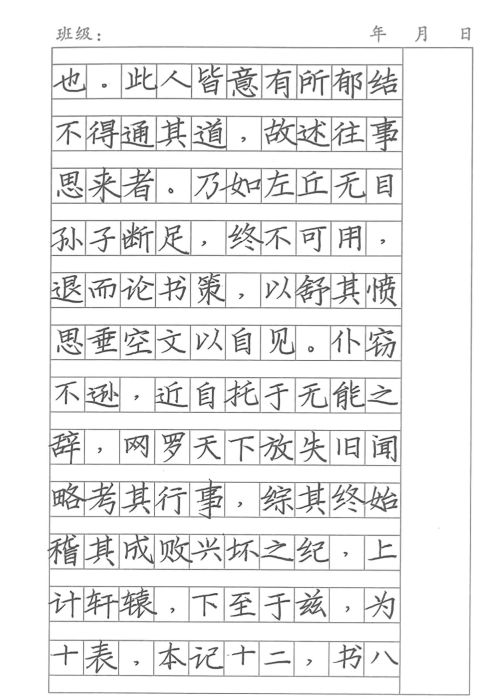 班级： 年 月 日
也。此人皆意有所郁结
不得通其道，故述往事
思来者。乃如左丘无目
孙子断足，终不可用，
退而论书策，以舒其愤
思垂空文以自见。仆窃
不逊，近自托于无能之
辞，网罗天下放失旧闻
略考其行事，综其终始
稽其成败兴坏之纪，上
计轩辕，下至于兹，为
十表，本记十二，书八